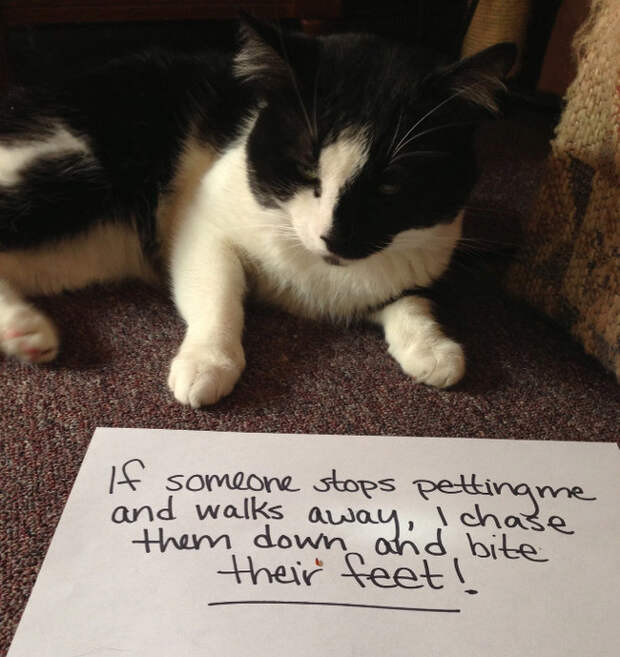 If someone stops petting me
and walks away, I chase
them down and bite
their feet!